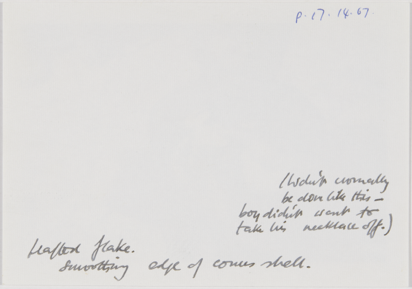 P.17.14.67.
(Wouldn't normally
be done like this –
boy didn't want to
take his necklace off.)
Hafted flake.
Smoothing edge of conus shell.